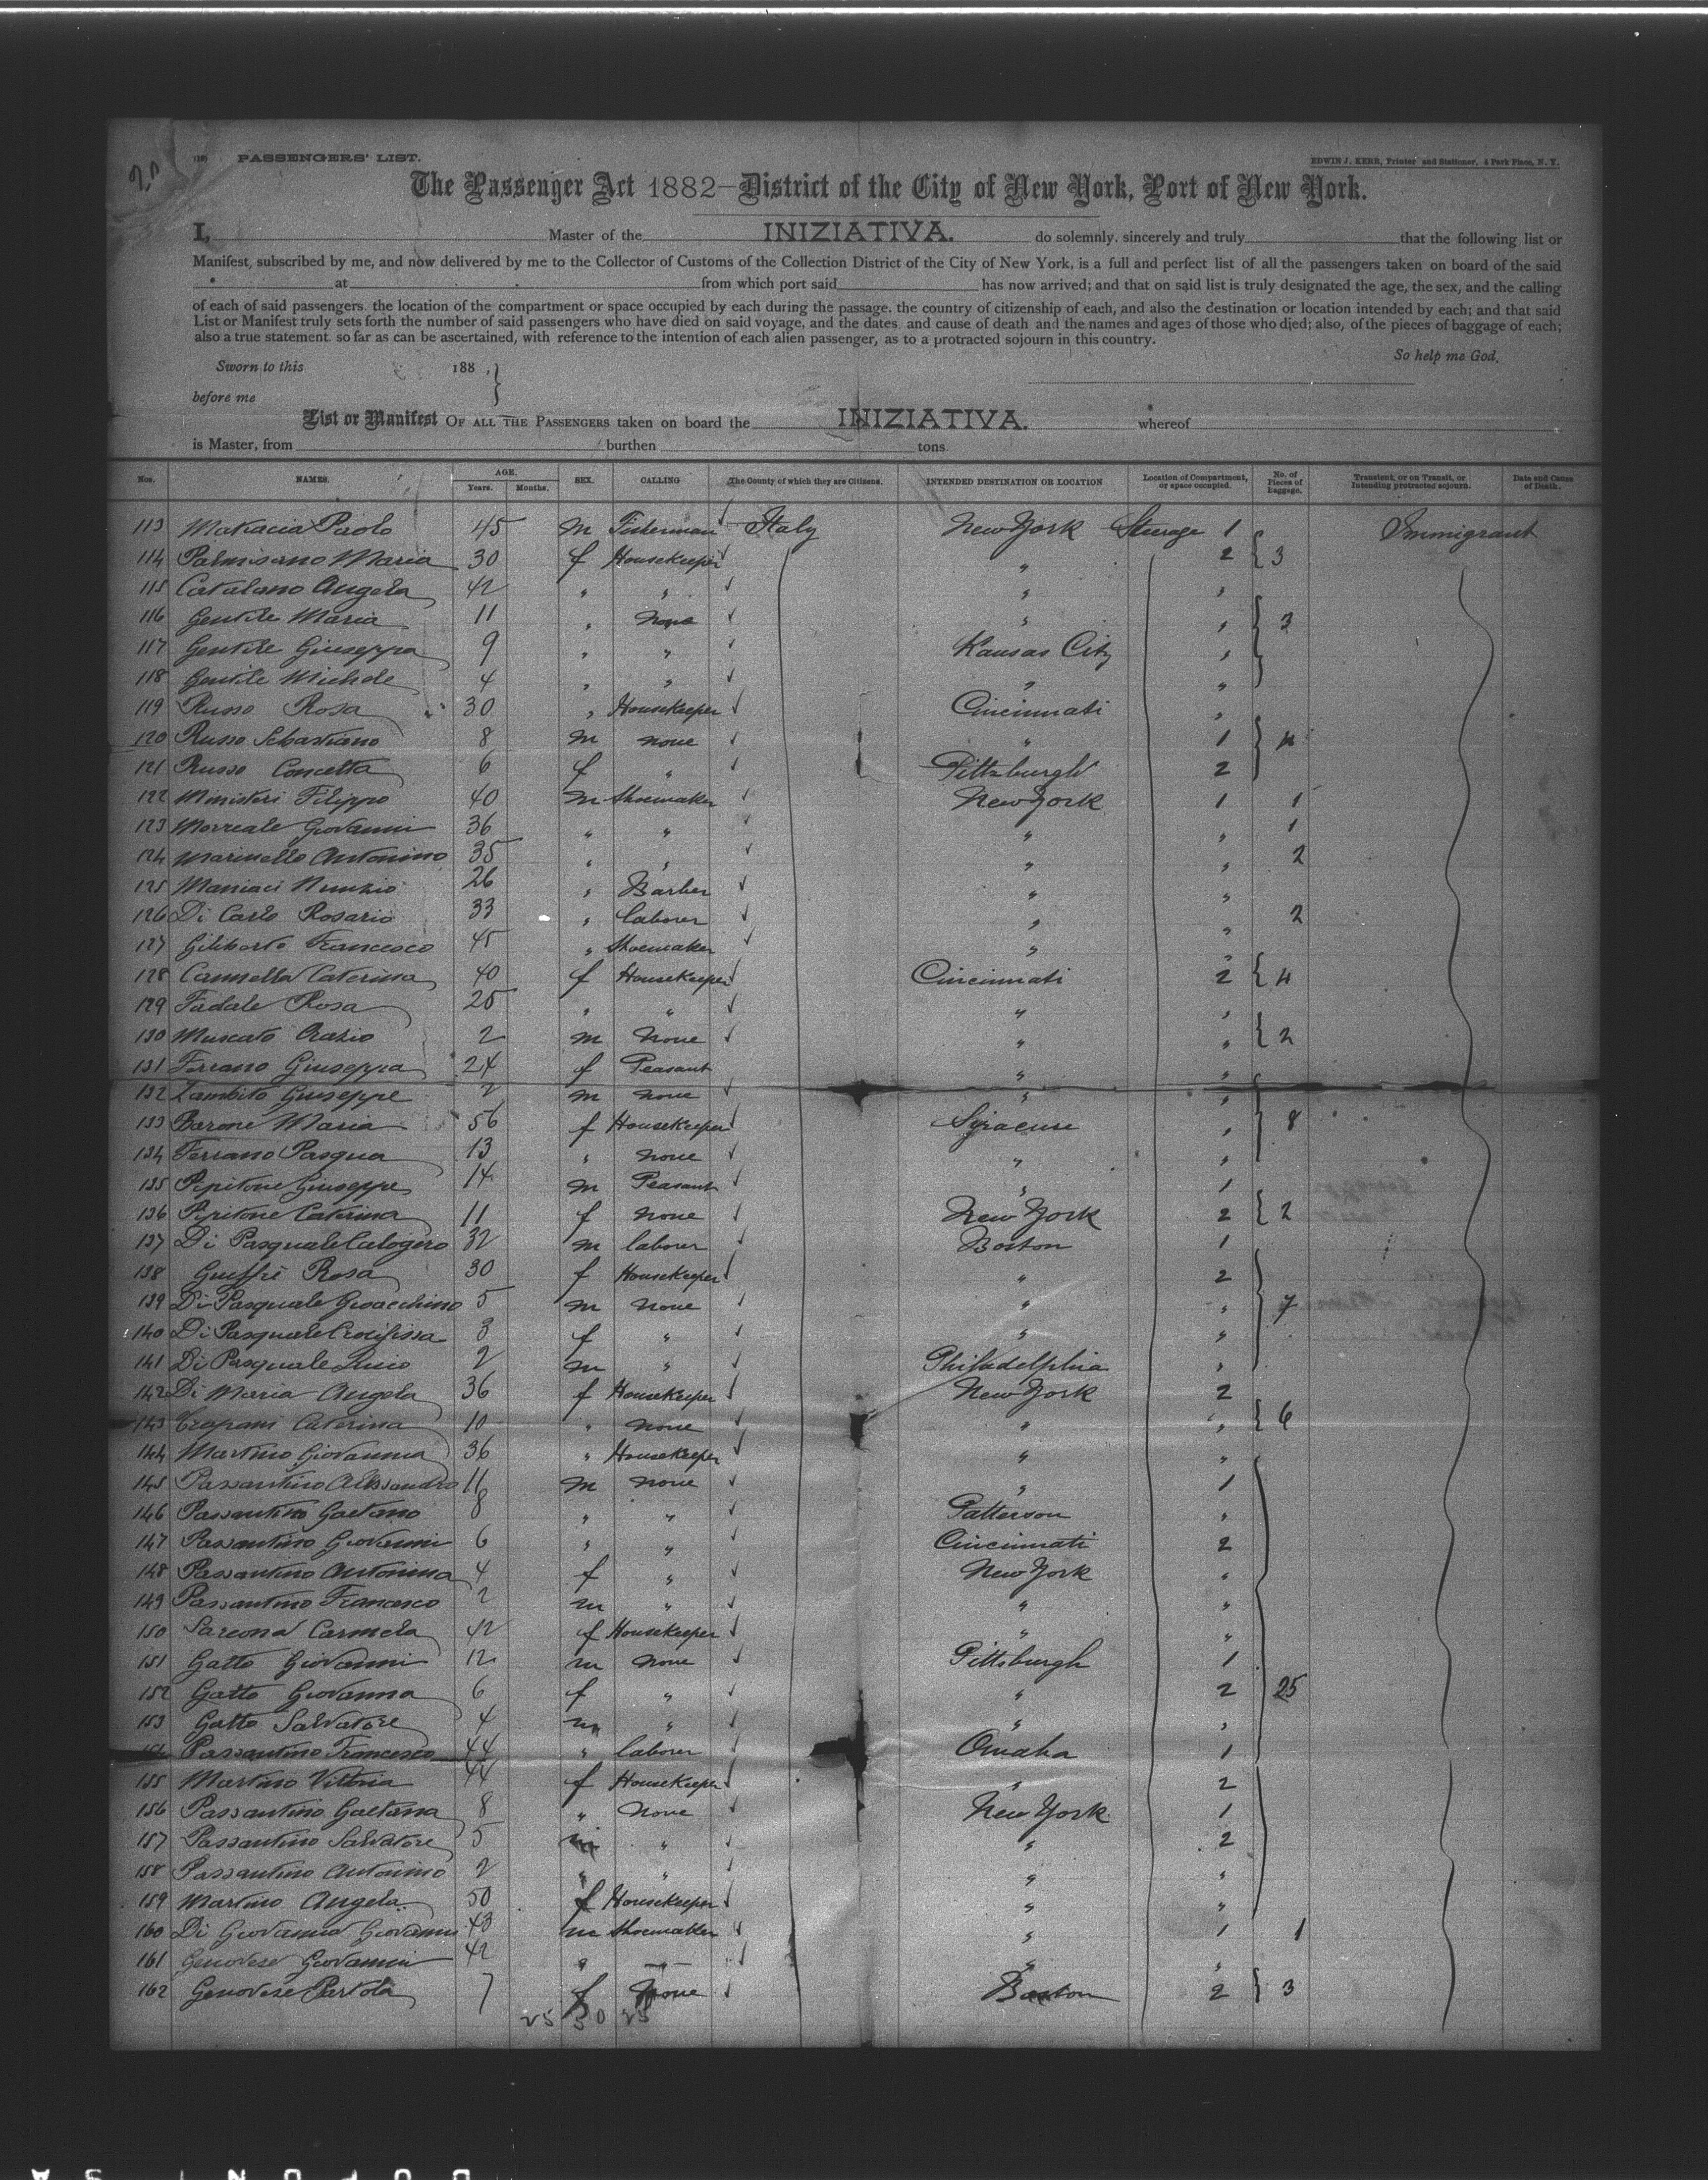 20
(10) PASSENGERS' LIST.
EDWIN J. KERR, Printer and Stationer, 4 Park Place, N. Y.
The Passenger Act 1882—District of the City of New York, Port of New York.
I, Master of the INIZIATIVA. do solemnly, sincerely and truly that the following list or
Manifest, subscribed by me, and now delivered by me to the Collector of Customs of the Collection District of the City of New York, is a full and perfect list of all the passengers taken on board of the said
at from which port said has now arrived; and that on said list is truly designated the age, the sex, and the calling
of each of said passengers, the location of the compartment or space occupied by each during the passage, the country of citizenship of each, and also the destination or location intended by each; and that said
List or Manifest truly sets forth the number of said passengers who have died on said voyage, and the dates and cause of death and the names and ages of those who died; also, of the pieces of baggage of each;
also a true statement, so far as can be ascertained, with reference to the intention of each alien passenger, as to a protracted sojourn in this country.
So help me God.
Sworn to this 188 ,
before me
List or Manifest OF ALL THE PASSENGERS taken on board the INIZIATIVA. whereof
is Master, from burthen tons
Nos. NAMES. AGE. Years. Months. SEX. CALLING The County of which they are Citizens. INTENDED DESTINATION OR LOCATION Location of Compartment, or space occupied. No. of Pieces of Baggage. Transient, or on Transit, or Intending protracted sojourn. Date and Cause of Death.
113 Matracia Paolo 45 m Fisherman Italy New York Steerage 1 Immigrant
114 Palmisano Maria 30 f Housekeeper " 2 3
115 Catalano Angela 42 " " " "
116 Gentile Maria 11 " None " " 3
117 Gentile Giuseppa 9 " " Kansas City "
118 Gentile Michele 4 " " " "
119 Russo Rosa 30 " Housekeeper Cincinnati "
120 Russo Sebastiano 8 m none " 1 4
121 Russo Concetta 6 f " Pittsburgh 2
122 Ministeri Filippo 40 m Shoemaker New York 1 1
123 Morreale Giovanni 36 " " " " 1
124 Marinello Antonino 35 " " " " 2
125 Maniaci Nunzio 26 " Barber " "
126 Di Carlo Rosario 33 " laborer " " 2
127 Giliberto Francesco 45 " Shoemaker " "
128 Cannella Caterina 40 f Housekeeper Cincinnati 2 4
129 Fadale Rosa 25 " " " "
130 Muscato Orazio 2 m None " " 2
131 Ferrano Giuseppa 24 f Peasant " "
132 Zambito Giuseppe 2 m none " "
133 Barone Maria 56 f Housekeeper Syracuse " 8
134 Ferrano Pasqua 13 " none " "
135 Pipitone Giuseppe 14 m Peasant " 1
136 Pipitone Caterina 11 f none New York 2 2
137 Di Pasquale Calogero 32 m laborer Boston 1
138 Gueffrè Rosa 30 f Housekeeper " 2
139 Di Pasquale Gioacchino 5 m none " " 7
140 Di Pasquale Crocifissa 3 f " " "
141 Di Pasquale Luicio 2 m " Philadelphia "
142 Di Maria Angela 36 f Housekeeper New York 2
143 Trapani Caterina 10 " none " " 6
144 Martino Giovanna 36 " Housekeeper " "
145 Passantino Alessandro 11 m none " 1
146 Passantino Gaetano 8 " " Patterson "
147 Passantino Giovanni 6 " " Cincinnati 2
148 Passantino Antonina 4 f " New York "
149 Passantino Francesco 2 m " " "
150 Sarcona Carmela 42 f Housekeeper " "
151 Gatto Giovanni 12 m none Pittsburgh 1
152 Gatto Giovanna 6 f " " 2 25
153 Gatto Salvatore 4 m " " "
154 Passantino Francesco 44 " laborer Omaha 1
155 Martino Vittoria 44 f Housekeeper " 2
156 Passantino Gaetana 8 " none New York 1
157 Passantino Salvatore 5 m " " 2
158 Passantino Antonino 2 " " " "
159 Martino Angela 50 f Housekeeper " "
160 Di Giovanna Giovanni 43 m Shoemaker " 1 1
161 Genovese Giovanni 42 " " " "
162 Genovese Portola 7 f None Boston 2 3
25 50 25